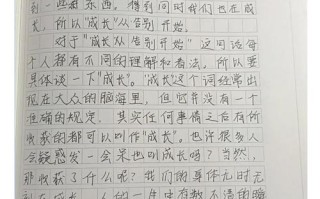 到一些新东西。得到同时我们也在成
长，所以"成长"从告别开始。
对于"成长从告别开始"这句话每
个人都有不同的理解和看法。所以要
具体谈一下"成长"。"成长"这个词经常出
现在大众的脑海里，但它并没有一个
准确的规定，其实任何事情之后有所
收获的都可以叫作"成长"。也许很多人
会疑惑发一会呆也叫成长吗？当然，
那收获了什么呢？我们的身体无时无